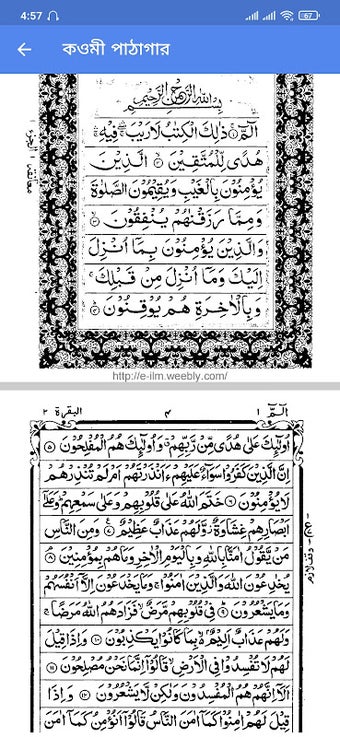 4:57
67
কওমী পাঠাগার
بِسْمِ اللهِ الرَّحْمٰنِ الرَّحِيْمِ
الٓمّٓ ذٰلِكَ الْكِتٰبُ لَا رَيْبَ فِيْهِ
هُدًى لِّلْمُتَّقِيْنَ ۙ الَّذِيْنَ
يُؤْمِنُوْنَ بِالْغَيْبِ وَيُقِيْمُوْنَ الصَّلٰوةَ
وَمِمَّا رَزَقْنٰهُمْ يُنْفِقُوْنَ ۙ
وَالَّذِيْنَ يُؤْمِنُوْنَ بِمَآ اُنْزِلَ
اِلَيْكَ وَمَآ اُنْزِلَ مِنْ قَبْلِكَ ۚ
وَبِالْاٰخِرَةِ هُمْ يُوْقِنُوْنَ ۙ
http://e-ilm.weebly.com/
الٓمّٓ ١ ٤ البقرة ٢
اُولٰٓئِكَ عَلٰى هُدًى مِّنْ رَّبِّهِمْ ۙ وَاُولٰٓئِكَ هُمُ الْمُفْلِحُوْنَ ٥
اِنَّ الَّذِيْنَ كَفَرُوْا سَوَآءٌ عَلَيْهِمْ ءَاَنْذَرْتَهُمْ اَمْ لَمْ تُنْذِرْهُمْ
لَا يُؤْمِنُوْنَ ٦ خَتَمَ اللهُ عَلٰى قُلُوْبِهِمْ وَعَلٰى سَمْعِهِمْ ۗ وَعَلٰٓى
اَبْصَارِهِمْ غِشَاوَةٌ ۖ وَّلَهُمْ عَذَابٌ عَظِيْمٌ ٧ وَمِنَ النَّاسِ
مَنْ يَّقُوْلُ اٰمَنَّا بِاللهِ وَبِالْيَوْمِ الْاٰخِرِ وَمَا هُمْ بِمُؤْمِنِيْنَ ٨
يُخٰدِعُوْنَ اللهَ وَالَّذِيْنَ اٰمَنُوْا ۚ وَمَا يَخْدَعُوْنَ اِلَّآ اَنْفُسَهُمْ
وَمَا يَشْعُرُوْنَ ٩ فِيْ قُلُوْبِهِمْ مَّرَضٌ ۙ فَزَادَهُمُ اللهُ مَرَضًا ۚ
وَلَهُمْ عَذَابٌ اَلِيْمٌ ۢ بِمَا كَانُوْا يَكْذِبُوْنَ ١٠ وَاِذَا قِيْلَ
لَهُمْ لَا تُفْسِدُوْا فِى الْاَرْضِ ۙ قَالُوْٓا اِنَّمَا نَحْنُ مُصْلِحُوْنَ ١١
اَلَآ اِنَّهُمْ هُمُ الْمُفْسِدُوْنَ وَلٰكِنْ لَّا يَشْعُرُوْنَ ١٢ وَاِذَا
قِيْلَ لَهُمْ اٰمِنُوْا كَمَآ اٰمَنَ النَّاسُ قَالُوْٓا اَنُؤْمِنُ كَمَآ اٰمَنَ